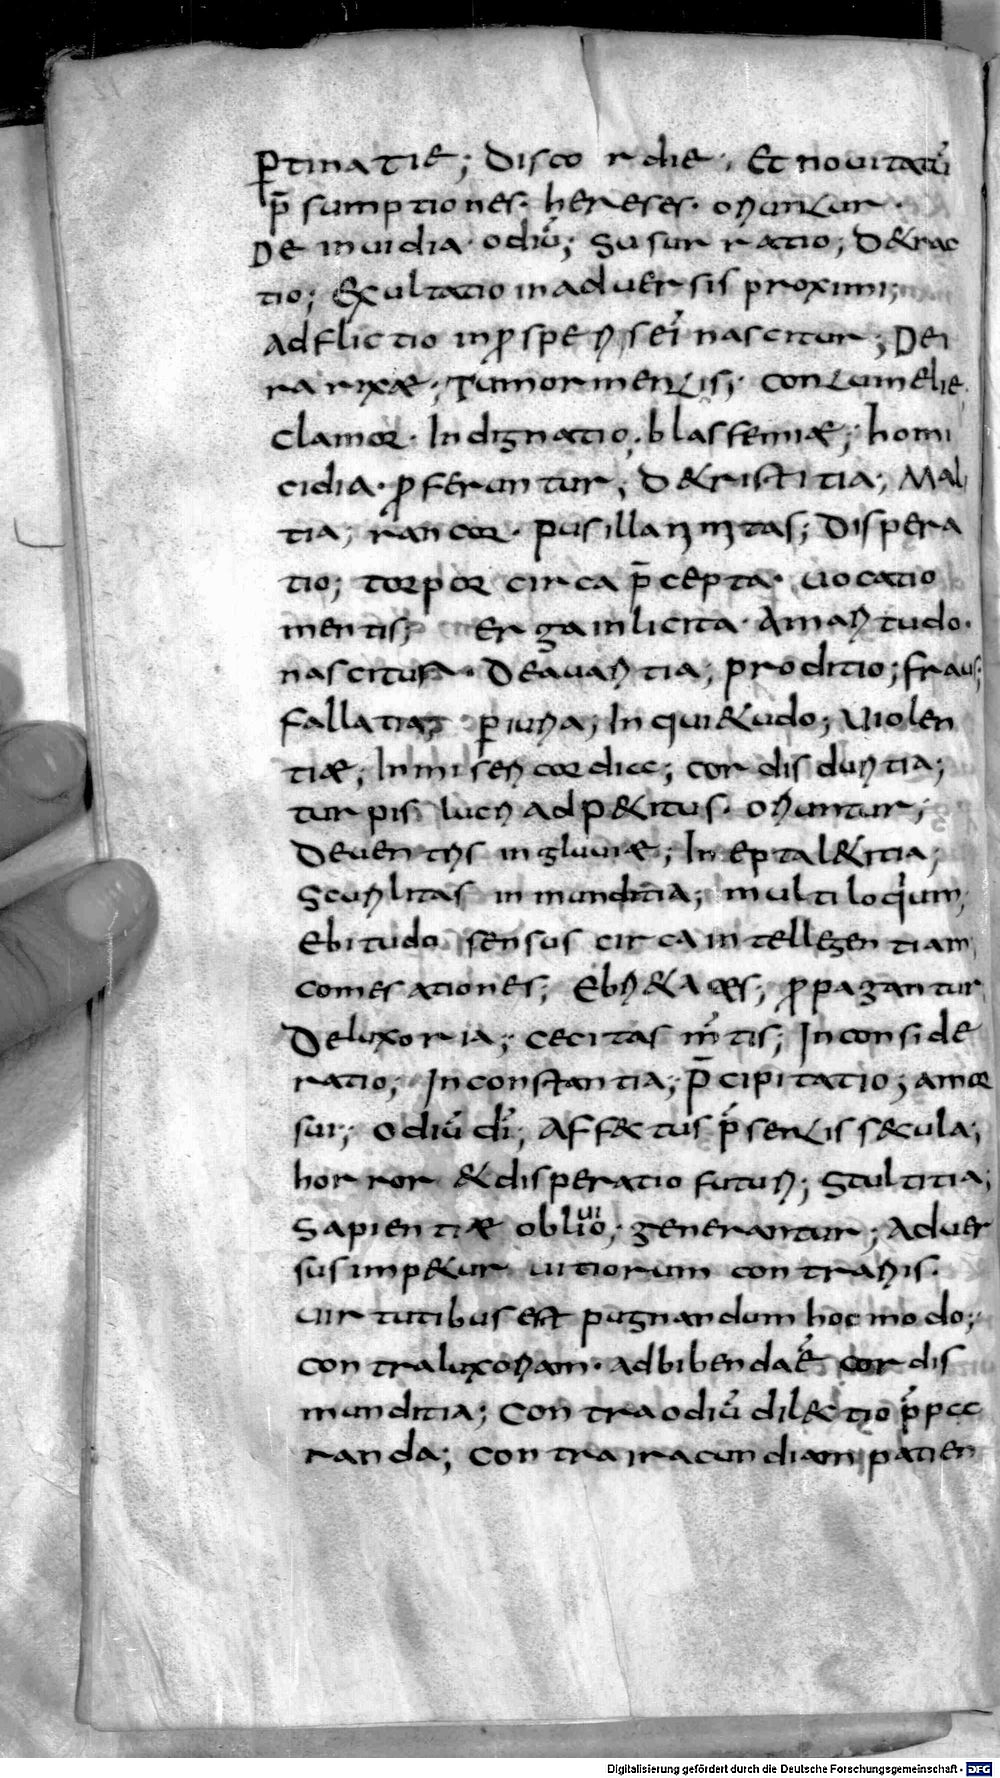 ꝑtinatię; discordię; et nouitatū
p̄sumptiones. hereses. oriuntur.
De inuidia. odiū; susurratio; detrac
tio; exultatio in aduersis proximi;
adflictio in ꝓsperis ei nascitur; De i
ra rixæ. tumor mentis; contumelię.
clamor. indignatio. blasfemiæ; homi
cidia. ꝓferuntur; de tristitia; mali
tia; rancor. pusillanimitas; dispera
tio; torpor circa p̄cepta. uocatio
mentis; erga inlicita. amaritudo.
nascitur. De auaritia; proditio; fraus;
fallatia; ꝑiuria; inquietudo; uiolen
tiæ; inmisericordiae; cordis duritia;
turpis lucri adpetitus. oriuntur;
De uentris ingluuiæ; inepta letitia;
scurilitas inmunditia; multiloquium;
ebitudo sensus circa intellegentiam
comesationes; ebrietates; ꝓpagantur
De luxoria; cecitas m̄tis; inconside
ratio; inconstantia; p̄cipitatio; amor
sui; odiū dī; affectus p̄sentis sæcula;
horror et disperatio futuri; stultitia;
sapientiæ obliuio; generantur; aduer
sus impetur uitiorum contrariis.
uirtutibus est pugnandum hoc modo;
contra luxoriam. adbibenda ē cordis
munditia; contra odiū dilectio p̄pa
randa; contra iracundiam patien
Digitalisierung gefördert durch die Deutsche Forschungsgemeinschaft - DFG